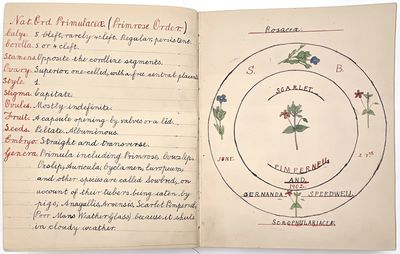 Nat. Ord Primulaceæ (Primrose Order.)
Calyx 5 cleft, rarely 4 cleft. Regular, persistent.
Corolla 5 or 4 cleft.
Stamens Opposite the corolline segments.
Ovary. Superior, one-celled, with a free central placenta
Style 1.
Stigma Capitate.
Ovules. Mostly indefinite.
Fruit. A capsule opening by valves or a lid.
Seeds. Peltate. Albuminous.
Embryo. Straight and transverse.
Genera. Primula including Primrose, Cowslip,
Oxslip, Auricula; Cyclamen, Europæum,
and other species are called Sowbreads, on
account of their tubers being eaten by
pigs; Anagallis, Arvensis, Scarlet Pimpernel,
(Poor Mans Weather Glass) because it shuts
in cloudy weather.
Rosaceæ.
S. B.
SCARLET
JUNE. 27TH
PIMPERNEL
AND
1902.
GERMANDA SPEEDWELL
SCROPHULARIACEÆ